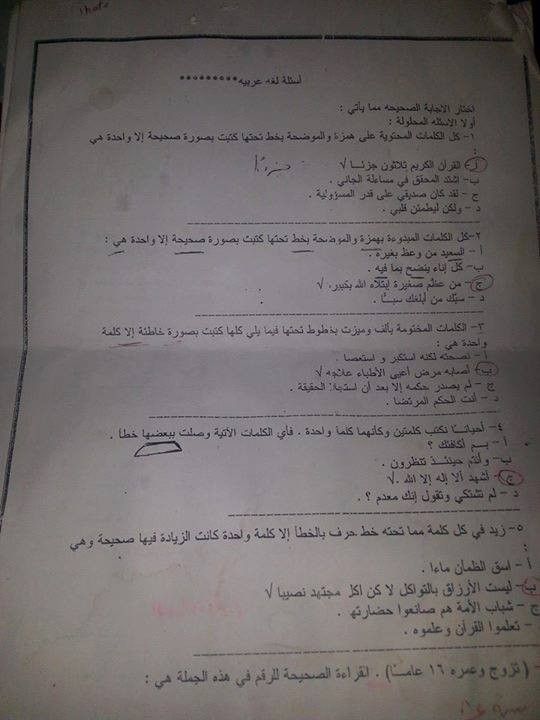 أسئلة لغه عربيه*********
اختار الاجابة الصحيحه مما يأتي :
أولا الاسئله المحلولة :
١- كل الكلمات المحتوية على همزة والموضحة بخط تحتها كتبت بصورة صحيحة إلا واحدة هي
:
أ- القرآن الكريم ثلاثون جزئـا √
ب- اشتد المحقق في مساءلة الجاني .
ج - لقد كان صديقي على قدر المسؤولية .
د - ولكن ليطمئن قلبي .
٢-كل الكلمات المبدوءة بهمزة والموضحة بخط تحتها كتبت بصورة صحيحة إلا واحدة هي :
أ - السعيد من وعظ بغيره .
ب- كل إناء ينضح بما فيه .
ج - من عظم صغيرة إبتلاء الله بكبير. √
د - سبّك من أبلغك سبـّا .
٣- الكلمات المختومة بألف وميزت بخطوط تحتها فيما يلي كلها كتبت بصورة خاطئة إلا كلمة
واحدة هي :
أ - نصحته لكنه استكبر و استعصا .
ب- أصابه مرض أعيى الأطباء علاجه √
ج - لم يصدر حكمه إلا بعد أن الحقيقة .
د - أنت الحكم المرتضا .
٤- أحيانـا نكتب كلمتين وكأنهما كلمة واحدة . فأي الكلمات الآتية وصلت ببعضها خطأ .
أ - بـــم أكافئك ؟
ب- وأنتم حينئــذ تنظرون .
ج - أشهد ألا إله إلا الله . √
د - لم تشتكي وتقول إنك معدم ؟ .
٥- زيد في كل كلمة مما تحته خط حرف بالخطأ إلا كلمة واحدة كانت الزيادة فيها صحيحة وهي
:
أ - اسق الظمآن ماءا .
ب- ليست الأرزاق بالتواكل لا كن لكل مجتهد نصيبا √
ج - شباب الأمة هم صانعوا حضارتها .
- تعلموا القرآن وعلموه .
- (تزوج وعمره ١٦ عامـا) . القراءة الصحيحة للرقم في هذه الجملة هي :